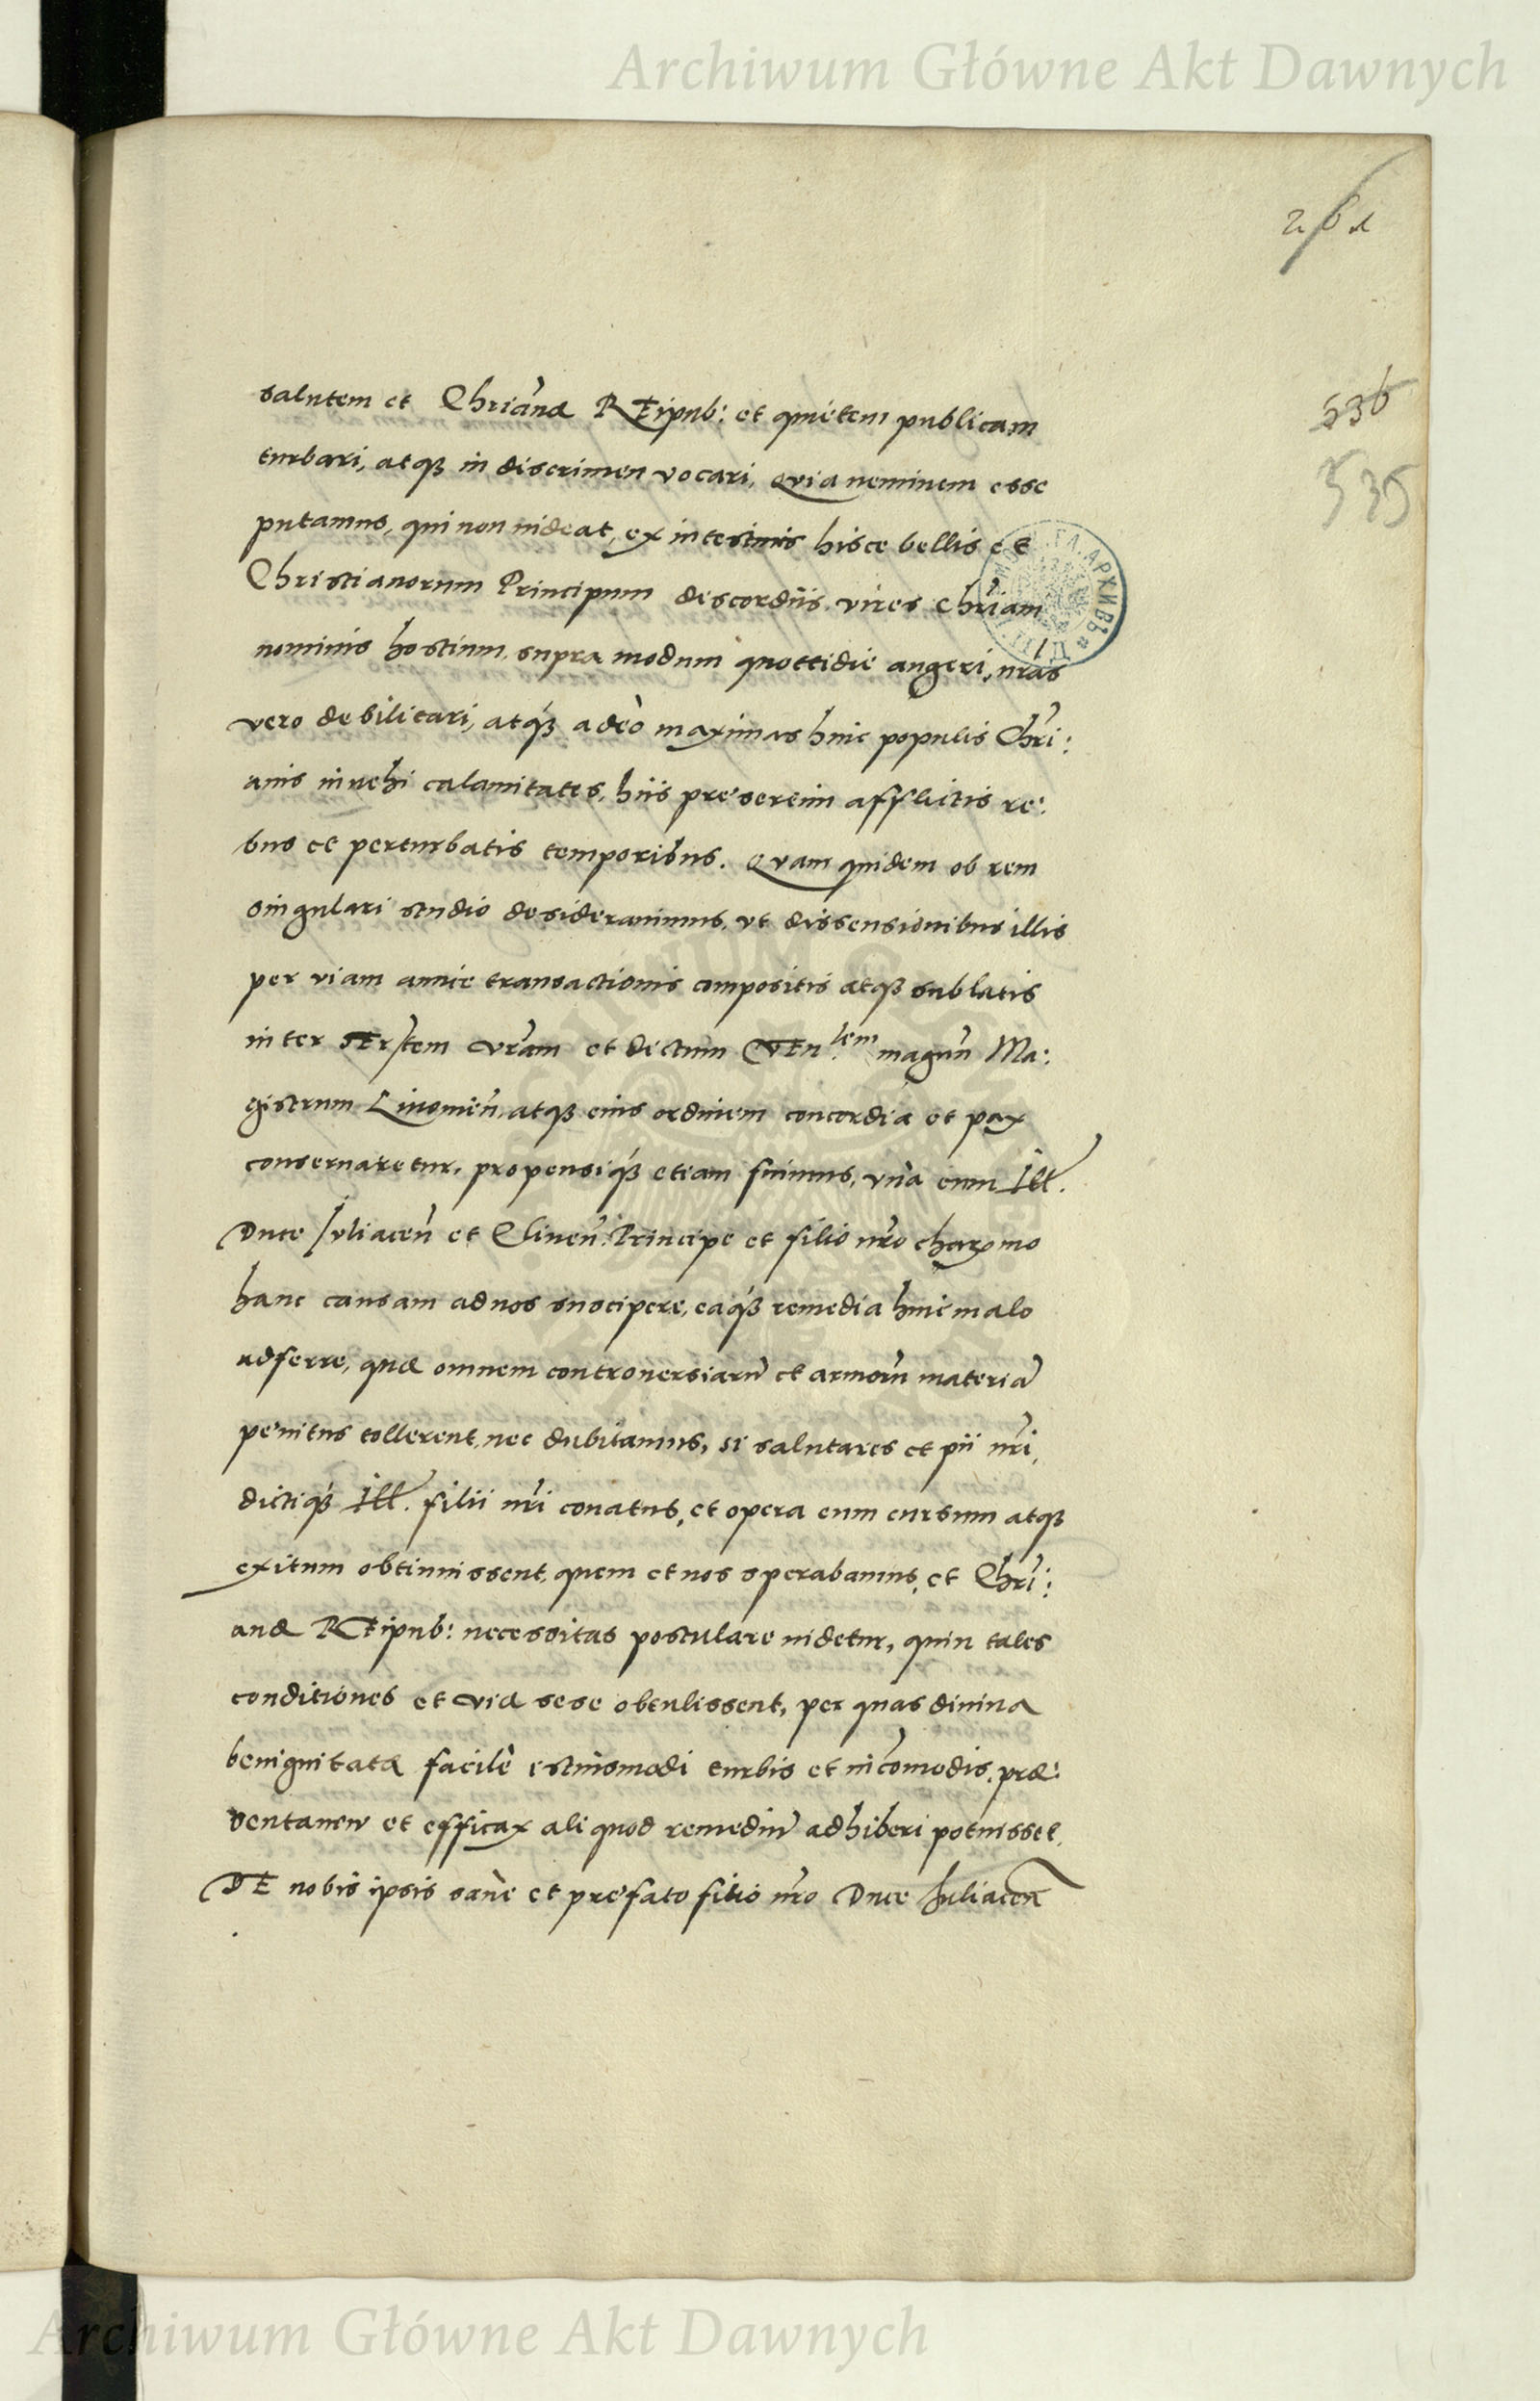 Archiwum Główne Akt Dawnych
536
535
salutem et Chr̃ianæ REipub: et quietem publicam
turbari, atqꝫ in discrimen vocari, Quia neminem esse
putamus, qui non uideat, ex intestinis hisce bellis et
Christianorum Principum descordiis, vires Chr̃iam
nominis hostium, supra modum quottidie augeri, nr̃as
vero debilitari, atqꝫ adeò maximas huic populis Chr̃i:
anis inuehi calamitates, hiis presertim afflictis re:
bus et perturbatis temporibus. Quam quidem ob rem
singulari studio desiderauimus, vt dissensionibus illis
per viam amice transactionis compositis atqꝫ sublatis
inter SErtem Vr̃am et dictum VEn:lem magnũ Ma:
gistrum Liuonieñ, atqꝫ eius ordinem concordia et pax
conseruaretur, propensiqꝫ etiam fuimus, vnà cum Ill.
Duce Iuliaceñ et Cliueñ: Principe et filio nr̃o charxmo
hanc causam ad nos suscipere, eaqꝫ remedia huic malo
adferre, quæ omnem controuersiarũ et armorũ materiã
penitus tollerent, nec dubitamus, si salutares et pii nr̃i,
dictiqꝫ Ill. filii nr̃i conatus, et opera eum cursum atqꝫ
exitum obtinuissent, quem et nos sperabamus, et Chr̃i:
anæ REipub: necessitas postulare uidetur, quin tales
conditiones et viæ sese obtulissent, per quas diuina
benignitate facilè istiusmodi turbis et incõmodis, præ:
sentaneũ et efficax aliquod remediũ adhiberi potuisset.
DE nobis ipsis sanè et prefato filio nr̃o Duce Iuliaceñ
Archiwum Główne Akt Dawnych